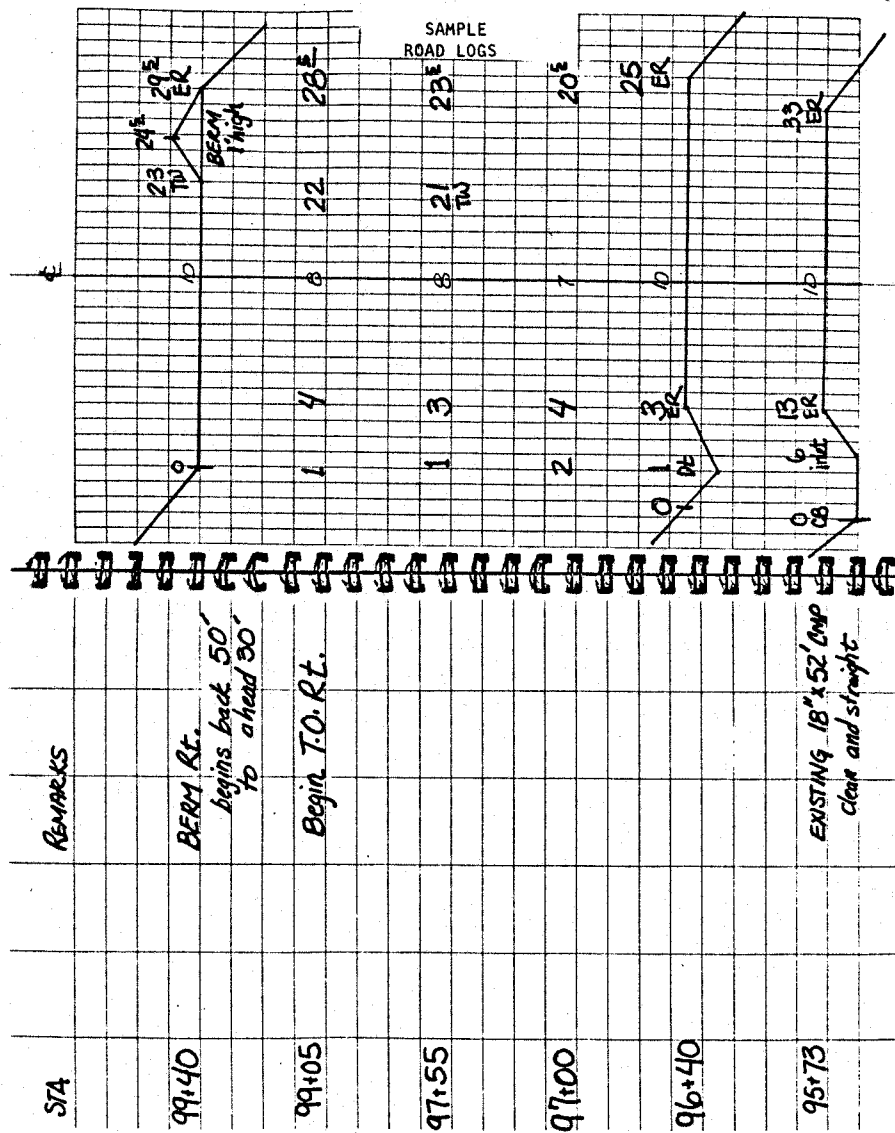 SAMPLE
ROAD LOGS
℄
STA
REMARKS
99+40
BERM Rt.
begins back 50'
to ahead 30'
0
10
23
TW
24⁵
29⁵
ER
BERM
1' high
99+05
Begin T.O. Rt.
1
4
8
22
28⁵
97+55
1
3
8
21
TW
23⁵
97+00
2
4
7
20⁵
96+40
0
1
Dt
3
ER
10
25
ER
95+73
EXISTING 18" x 52' CMP
clean and straight
0
CB
6
inlet
13
ER
10
33
ER